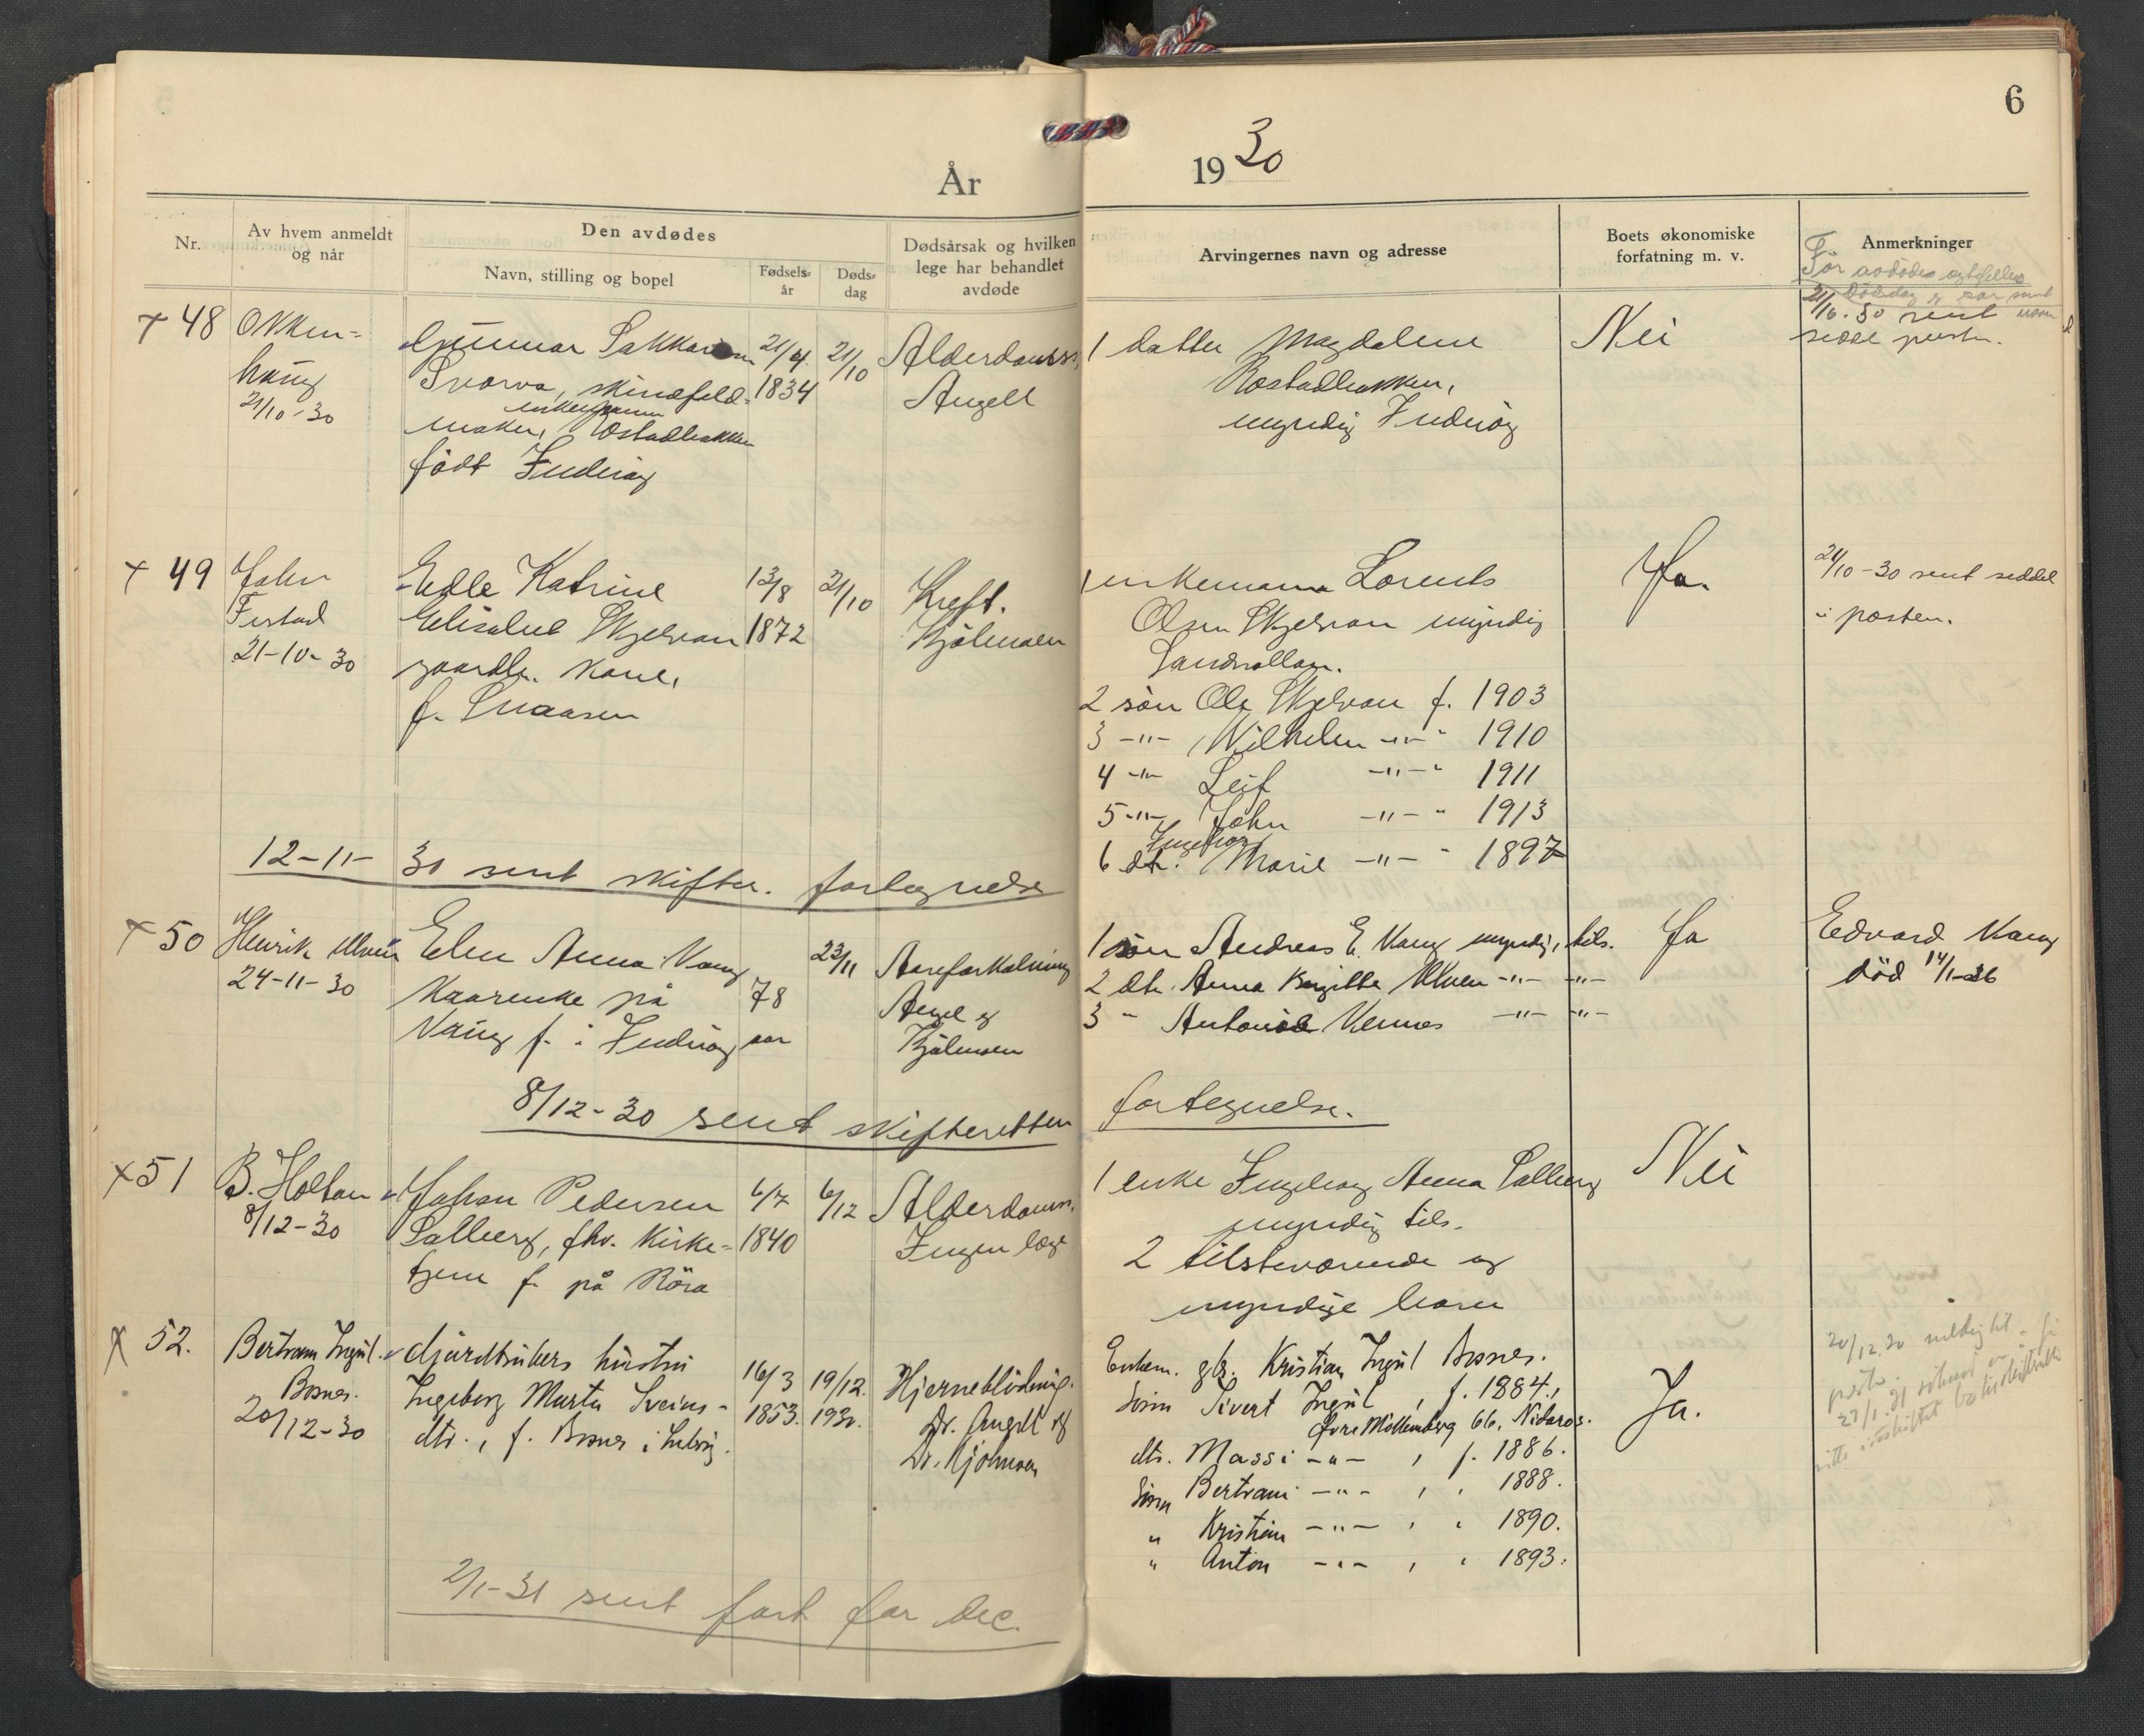 6
År 1930
Nr.
Av hvem anmeldt
og når
Den avdødes
Navn, stilling og bopel
Fødsels-
år
Døds-
dag
Dødsårsak og hvilken
lege har behandlet
avdøde
Arvingernes navn og adresse
Boets økonomiske
forfatning m. v.
Anmerkninger
+ 48
Okken-
haug
21/10-30
Gunnar
Svarva, skindfeld-
enkemann
maker, Rostadbakken
født Inderøy
21/4
1834
21/10
Alderdomss.
Angell
1 datter Magdalene
Rostadbakken,
myndig Inderøy
Nei
21/10.30 sent
+ 49
John
21-10-30
Edle Katrine
Elisabet Skjelvan
gaardbr. kone,
f. Snaasen
13/8
1872
21/10
Kreft.
Kjølmoen
1 enkemann Lorents
Olsen Skjelvan myndig
Sandvollan.
2 søn Ole Skjelvan f. 1903
3 -"- Wilhelm -"- " 1910
4 -"- Leif -"- " 1911
5 -"- John -"- " 1913
Ingeborg
6 dt. Marie -"- " 1897
Ja.
21/10-30 sent seddel
i posten.
12-11-30 sent skifter. fortegnelse
+ 50
Henrik
24-11-30
Elen Anna Vang
Kaarenke på
Vang f. i Inderøy
78
aar
23/11
Aareforkalkning
Angel og
Kjølmoen
1 søn Andreas E. Vang myndig, tils.
2 dtr. Anna Birgitte -"- -"-
3 " Vennes -"- -"-
Ja
Edvard Vang
død 14/1-26
8/12-30 sent skifteretten fortegnelse.
+ 51
B. Holtan
8/12-30
Johan Pedersen
Salberg, fhv. kirke-
tjener f. på Röra
6/7
1840
6/12
Alderdomss.
Ingen læge
1 enke Ingeborg Anna Salberg
myndig tils.
2 tilsteværende og
myndige barn
Nei
+ 52.
Bertram Ingul.
Bosnes.
20/12-30
Gjårdbrukers hustru
Ingeborg Marta Sveins-
dtr., f. Bosnes i Inderøy.
16/3
1853.
19/12.
1930.
Hjerneblödning.
Dr. Angell og
Dr. Kjølmoen
Enkem. gbr. Kristian Ingul Bosnes.
Sönn Sivert Ingul, f. 1884,
Övre Möllenberg 66, Nidaros.
dtr. Massi -"- , f. 1886.
Sönn Bertram -"- , " 1888.
" Kristian -"- , " 1890.
" Anton -"- , " 1893.
Ja.
20/12.30
2/1-31 sent fort for dec.